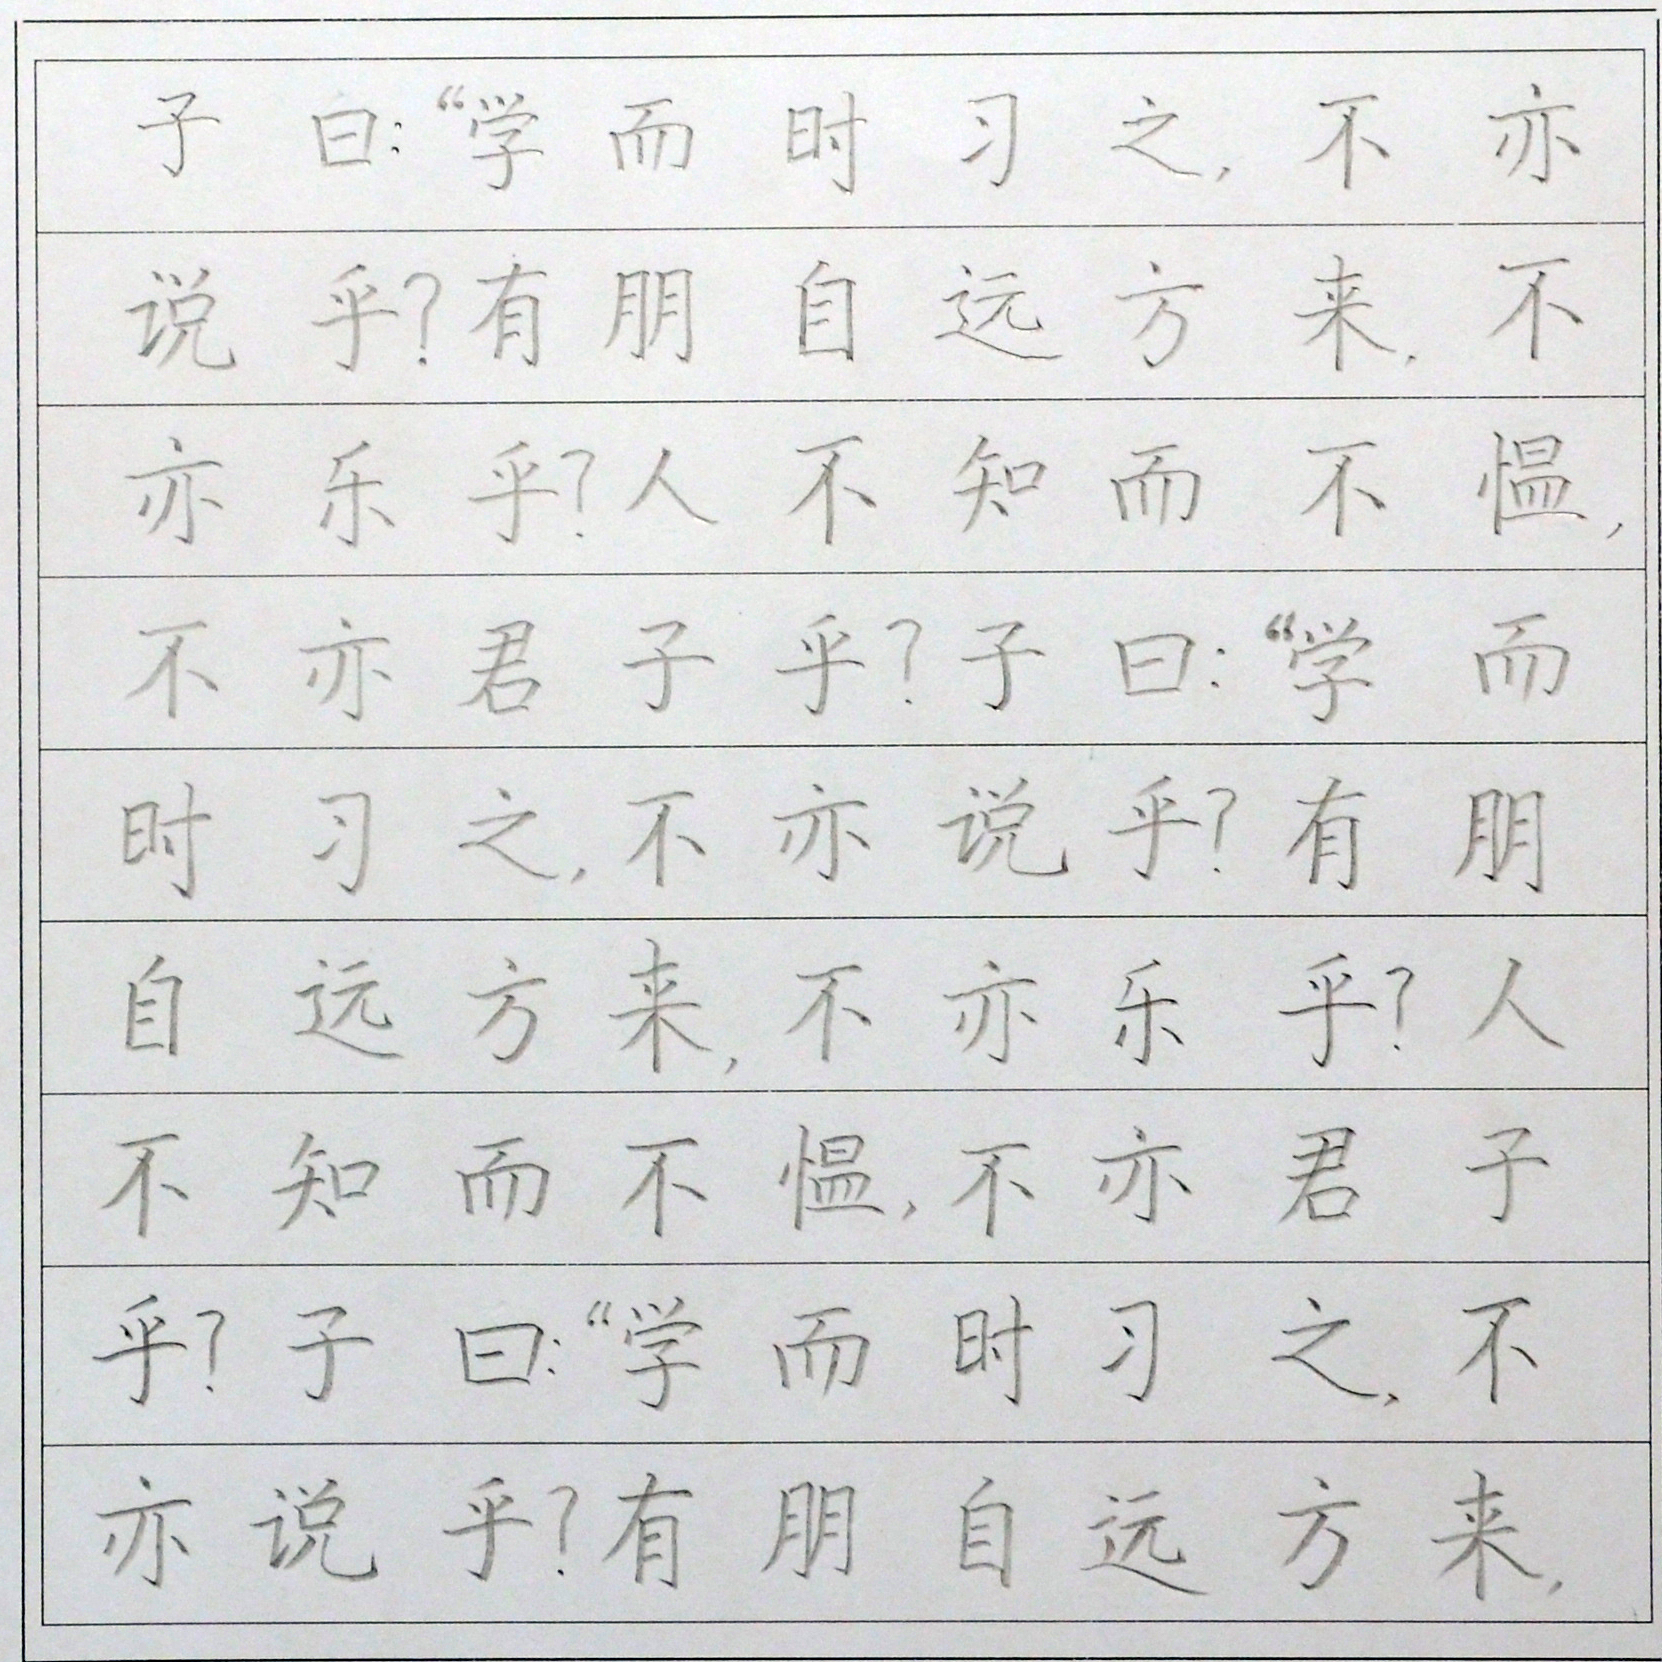 子曰：“学而时习之，不亦
说乎？有朋自远方来，不
亦乐乎？人不知而不愠，
不亦君子乎？子曰：“学而
时习之，不亦说乎？有朋
自远方来，不亦乐乎？人
不知而不愠，不亦君子
乎？子曰：“学而时习之，不
亦说乎？有朋自远方来，